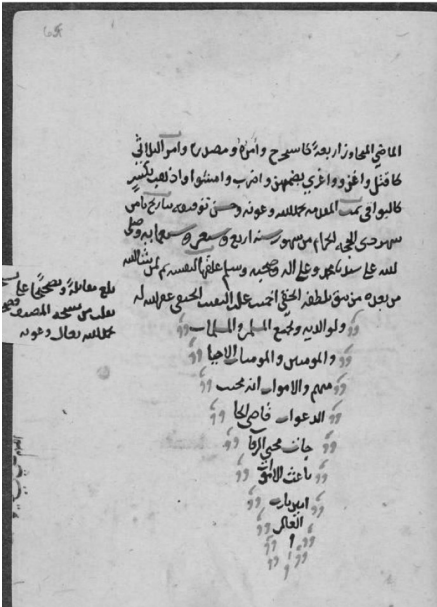 الماضي المجاوز اربعة كاستخرج وامره ومصدره وامر الثلاثي
كاقتل واغز واغزي بضمهن واضرب وامشوا واذهب بكسر
كالبواقي تمت المقدمة بحمد الله وعونه وحسن توفيقه بتاريخ ثامن
شهر ذي الحجه الحرام من شهور سنه اربع وتسعين وصلى
الله على سيدنا محمد وعلى اله وصحبه وسلم علقها لنفسه ثم لمن يشا الله
من بعده بلطفه الخفي احمد الحنفي له
ولوالديه ولجميع المسلمين والمسلمات
والمومنين والمومنات الاحيا
منهم والاموات انه مجيب
الدعوات قاضي الحا
جات
باعث الاموات
امين يارب
العالمين
بلغ مقابلة وتصحيحا على
نسخه المصنف
بحمد الله تعالى وعونه